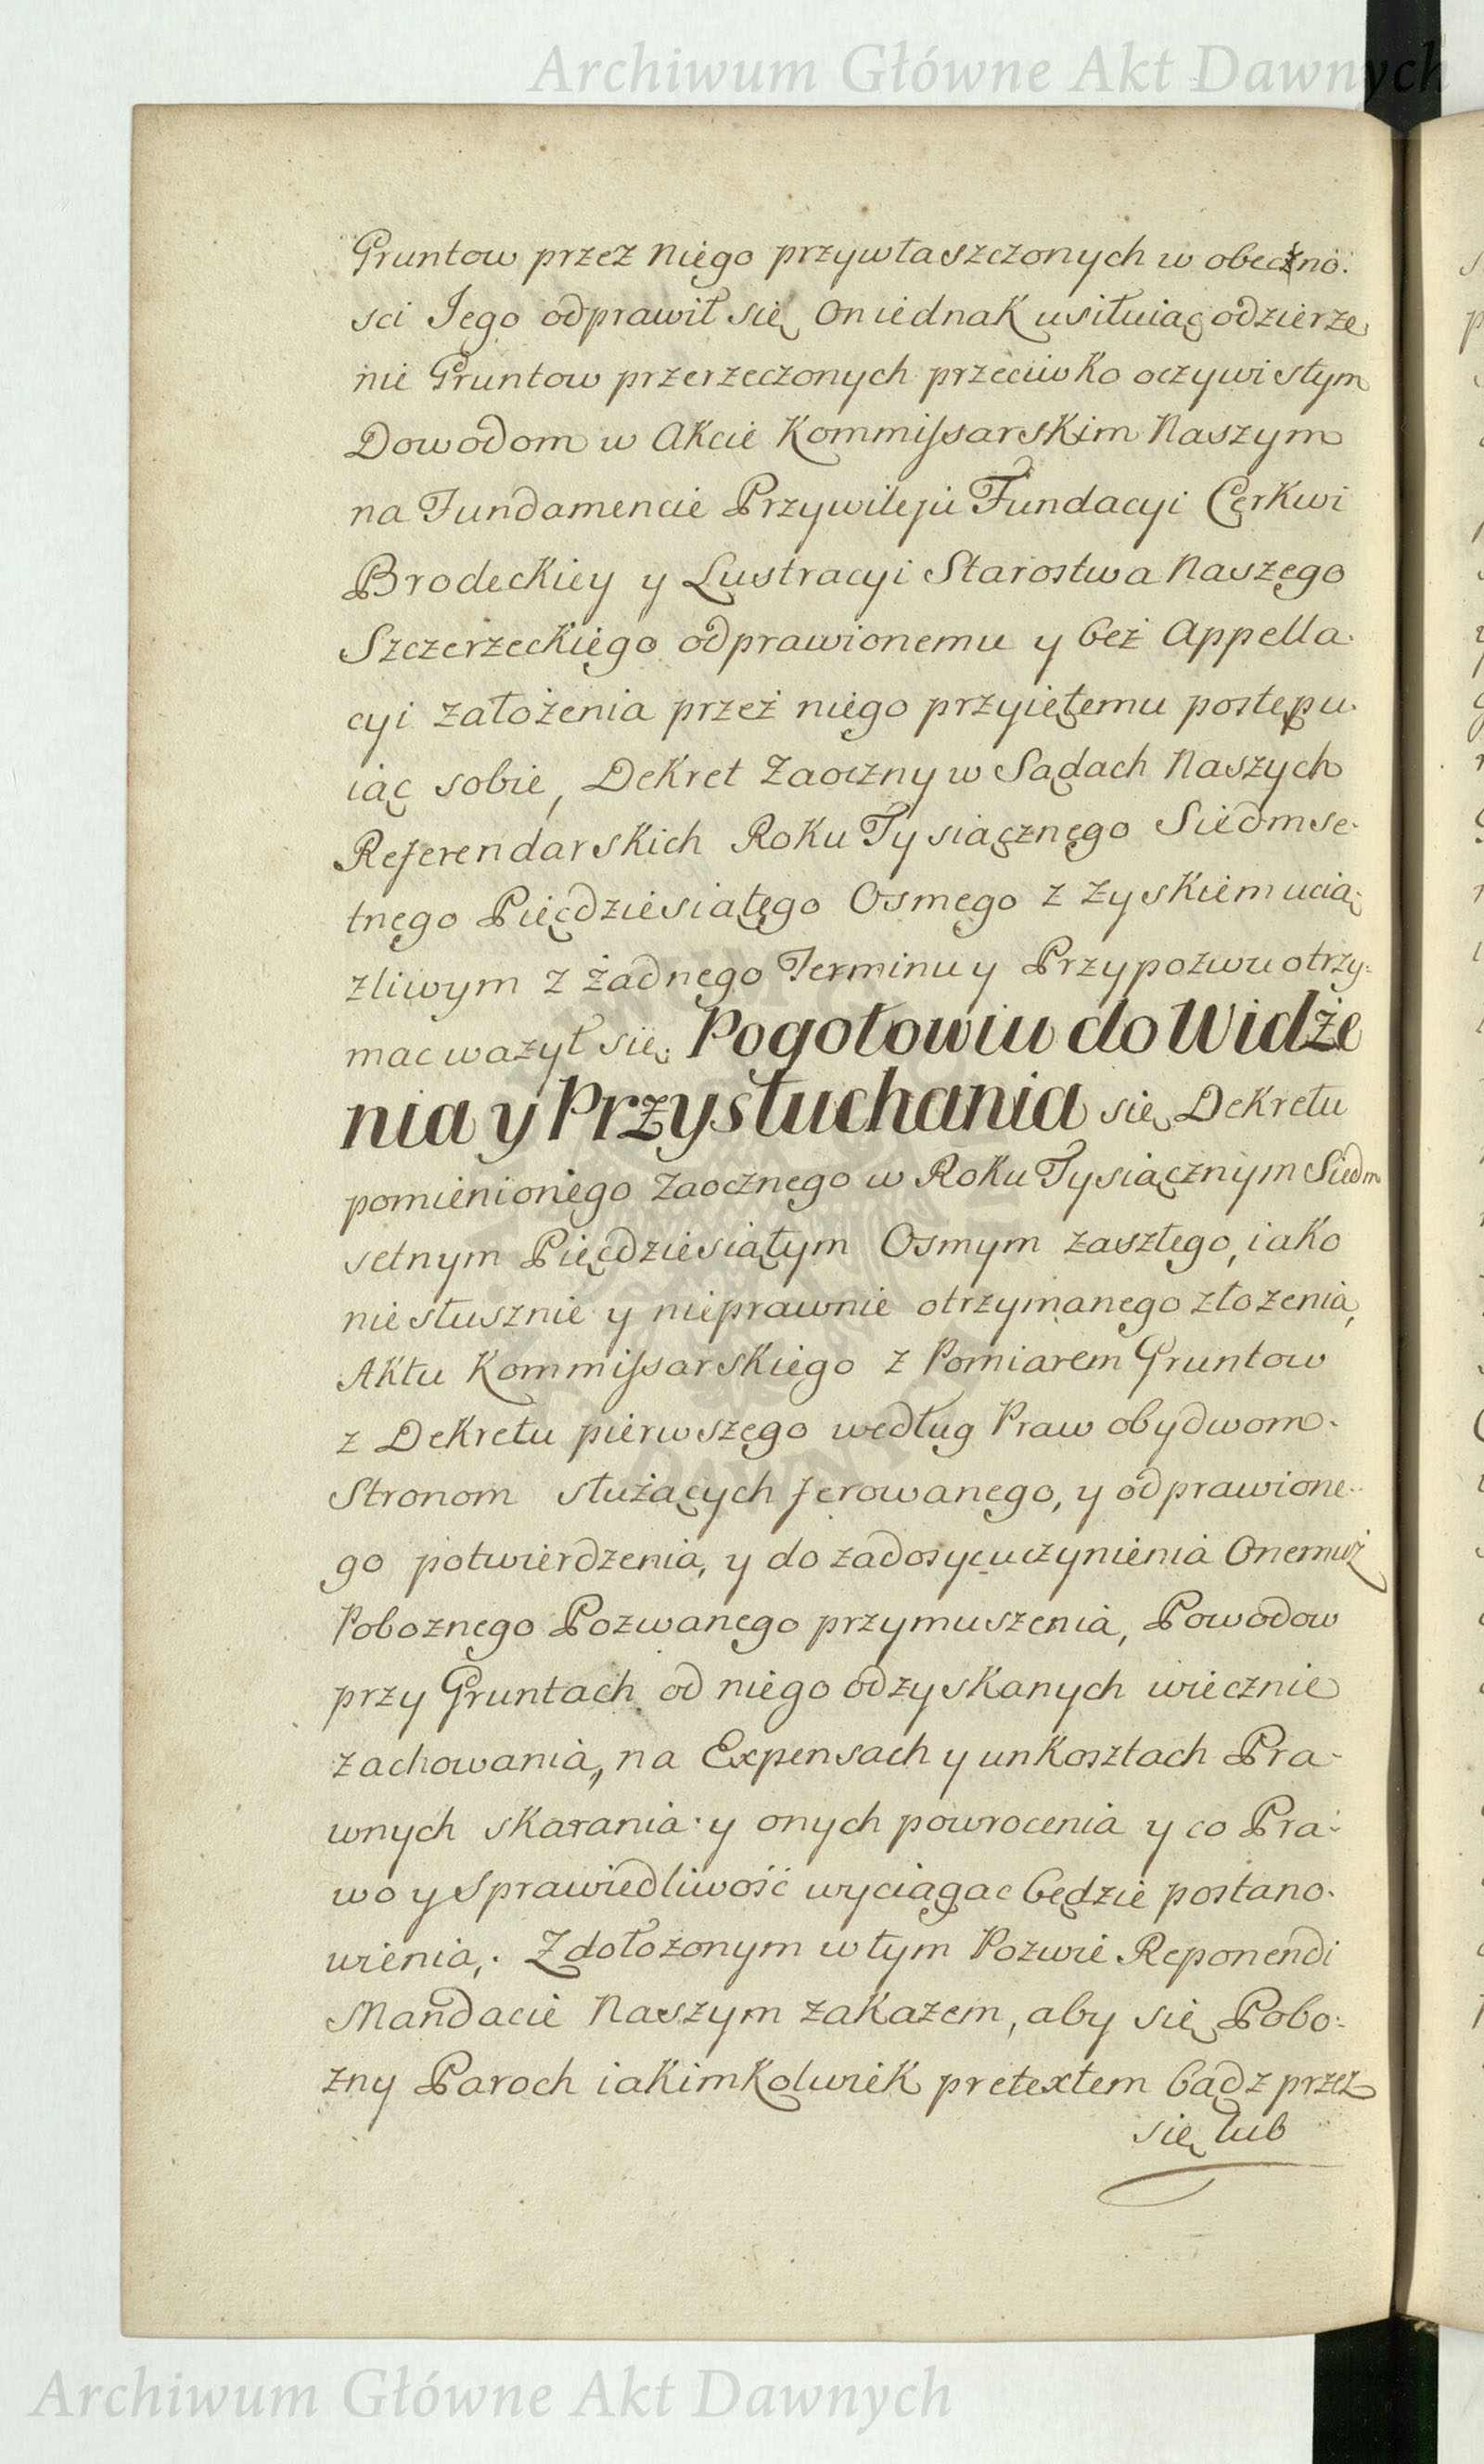 Archiwum Główne Akt Dawnych
Gruntow przez niego przywłaszczonych w obeczno.
sci Jego odprawił się, on iednak usiłuiąc odzierze,
nie Gruntow przerzeczonych przeciwko oczywistym
Dowodom w Akcie Kommissarskim Naszym
na Fundamencie Przywileju Fundacyi Cerkwi
Brodeckiey y Lustracyi Starostwa Naszego
Szczerzeckiego odprawionemu y beż Appella.
cyi załoźenia przeż niego przyiętemu postępu.
iąc sobie, Dekret Zaoczny w Sądach Naszych
Referendarskich Roku Tysiącznego Siedmse.
tnego Pięćdziesiątego Osmego z zyskiem ucią:
zliwym z żadnego Terminu y Przypozwu otrzy:
mac wazył się. Pogotowiu do Widże
nia y Przysłuchania się Dekretu
pomienionego Zaocznego w Roku Tysiącznym Siedm
setnym Pięcdziesiątym Osmym zaszłego, iako
niesłusznie y nieprawnie otrzymanego złozenia,
Aktu Kommissarskiego z Pomiarem Gruntow
z Dekretu pierwszego według Praw obydwom.
Stronom służących ferowanego, y odprawione..
go potwierdzenia, y do zadosycuczynienia Onemuż
Poboznego Pozwanego przymuszenia, Powodow
przy Gruntach od niego odzyskanych wiecznie
zachowania, na Expensach y unkosztach Pra-
wnych skarania y onych powrocenia y co Pra:
wo y Sprawiedliwość wyciągac będzie postano.
wienia,. Zdołożonym w tym Pozwie Reponendi
Mandacie Naszym zakazem, aby się Pobo:
zny Paroch iakimkolwiek pretextem bądz przez
się lub
Archiwum Główne Akt Dawnych